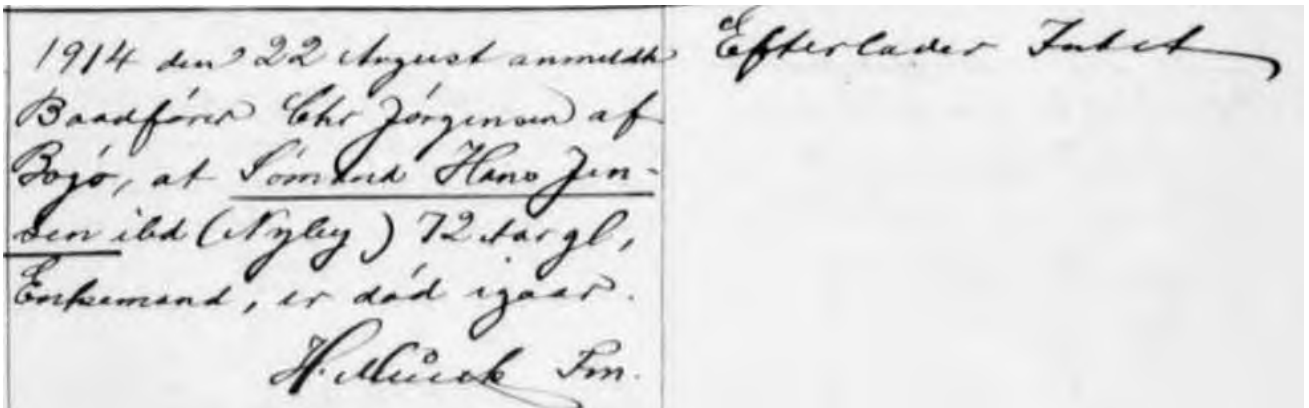 1914 den 22 August anmeldte
Baadfører Chr Jørgensen af
Bogø, at Sømand Hans Jen-
sen ibd (Nyby) 72 Aar gl,
Enkemand, er død igaar.
H. Munck Fm.
Efterlader Intet